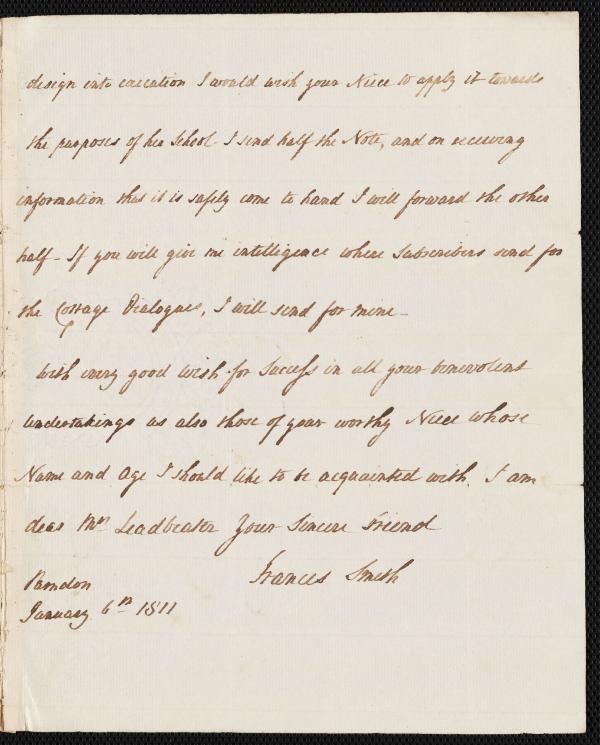 design into execution I would wish your Niece to apply it towards
the purposes of her School. I send half the Note, and on receiving
information that it is safely come to hand I will forward the other
half - If you will give me intelligence where Subscribers send for
the Cottage Dialogues, I will send for mine -
With every good wish for Success in all your benevolent
Undertakings as also those of your worthy Niece whose
Name and age I should like to be acquainted with. I am
dear Mrs Leadbeater Your Sincere Friend
Frances Smith
Parndon
January 6th 1811